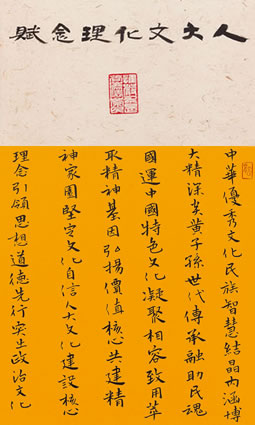 人大文化理念賦
中華優秀文化民族智慧結晶内涵博
大精深炎黃子孫世代傳承融助民魂
國運中國特色文化凝聚相容致用萃
取精神基因弘揚價值核心共建精
神家園堅定文化自信人大文化建設核心
理念引領思想道德先行突出政治文化